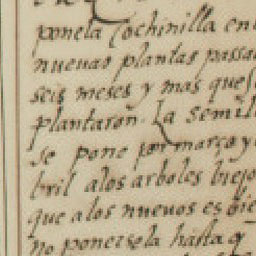 ponela Cochinilla en l
nuevas plantas passa
seis meses y mas que s
plantaron. La semil
se pone por março y
bril alos arboles biejo
que alos nuevos es bie
no ponersela hasta q